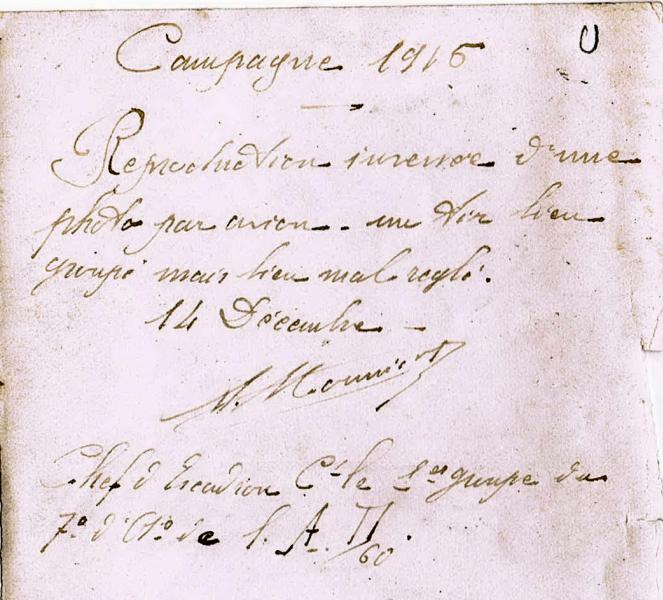 Campagne 1915
Reproduction inversée d'une
photo par avion - un tir bien
groupé mais bien mal réglé.
14 Décembre -
Chef d'Escadron Ct le 1er groupe du
7e d'Cie de l. A.
60